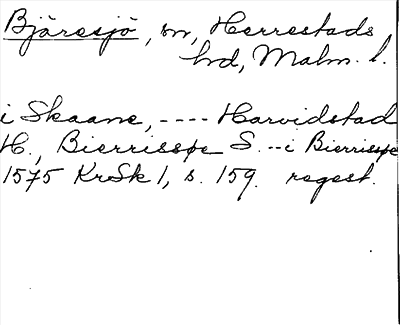 Bjäresjö, sn, Herrestads
hd, Malm. l.
i Skaane, ---- Harvidstad
H., Bierrisspe S. --i Bierrisspe
1575 KrSk 1, s. 159. regest.